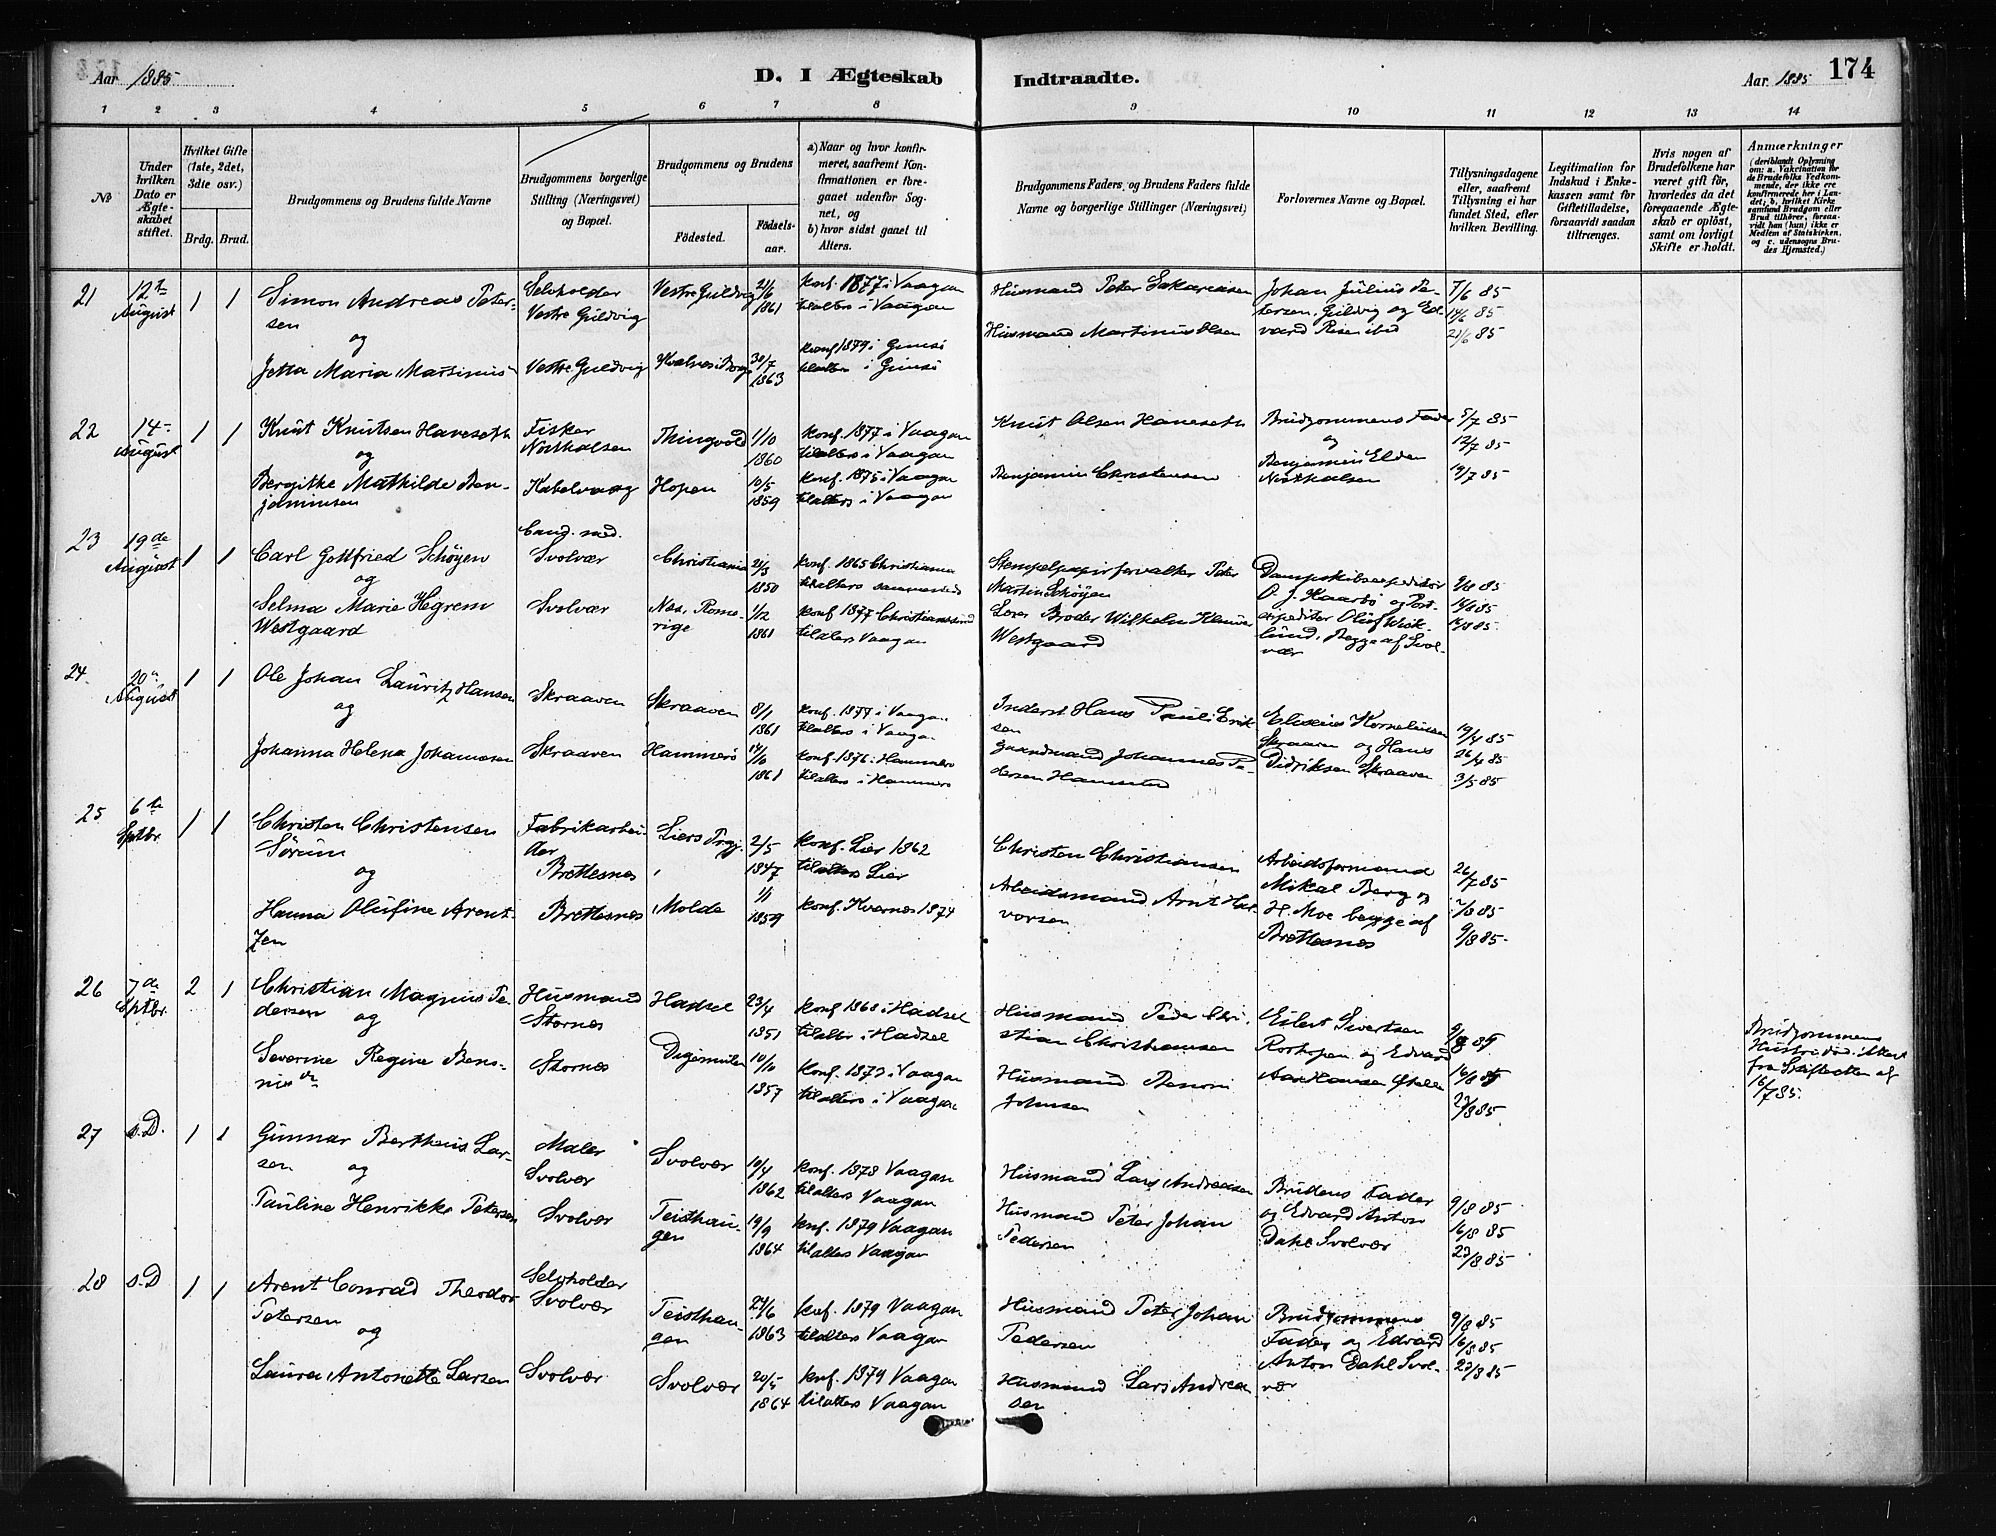 Aar 1885
D. I Ægteskab
Indtraadte.
Aar 1885
174
1 2 3 4 5 6 7 8 9 10 11 12 13 14
№
Under hvilken Dato er Ægteskabet stiftet.
Hvilket Gifte (1ste, 2det, 3die osv.)
Brdg. Brud.
Brudgommens og Brudens fulde Navne
Brudgommens borgerlige Stilling (Næringsvei) og Bopæl.
Brudgommens og Brudens
Fødested. Fødselsaar.
a) Naar og hvor konfirmeret, saafremt Konfirmationen er foregaaet udenfor Sognet, og
b) hvor sidst gaaet til Alters.
Brudgommens Faders og Brudens Faders fulde Navne og borgerlige Stillinger (Næringsvei)
Forlovernes Navne og Bopæl.
Tillysningsdagene eller, saafremt Tillysning ei har fundet Sted, efter hvilken Bevilling.
Legitimation for Indskud i Enkekassen samt for Giftetilladelse, forsaavidt saadan tiltrænges.
Hvis nogen af Brudefolkene har været gift før, hvorledes da det foregaaende Ægteskab er opløst, samt om lovligt Skifte er holdt.
Anmærkninger
(deriblandt Oplysning om: a. Vakcination for de Brudefolks Vedkommende, der ikke ere konfirmerede her i Landet; b. hvilket Kirkesamfund Brudgom eller Brud tilhører, forsaavidt han (hun) ikke er Medlem af Statskirken, og c. udensogns Brudes Hjemsted.)
21 12te August 1 1
Simon Andreas Petersen
og
Jetta Maria Martinus
Selvholder
Vestre Guldvig
Vestre Guldvig
Vestre Guldvig
21/6 1861
30/7 1863
konf. 1877 i Vaagan
tilalters i Vaagan
konf 1879 i Gimsö
tilalters i Gimsö
Husmand Peter Sakariasen
Husmand Martinus Olsen
Johan Julius Petersen, Guldvig og Edvard Risen ibid
7/6 85
14/6 85
21/6 85
22 14de August 1 1
Knut Knutsen Haveseth
og
Bergitke Mathilde Benjaminsen
Fisker
Kabelvaag
Thingvold
Hopen
1/10 1860
10/5 1859
konf. 1877 i Vaagan
tilalters i Vaagan
konf. 1875 i Vaagan
tilalters i Vaagan
Knut Olsen Haveseth
Benjamin Christensen
Brudgommens Fader
og
5/7 85
12/7 85
19/7 85
23 19de August 1 1
Carl Gottfried Schøyen
og
Selma Marie Hegrem Westgaard
Cand. med.
Svolvær
Svolvær
Christiania
Nes, Romerige
1850
1/12 1861
konf. 1865 Christiania
tilalters sammesteds
konf. 1877 Christianssund
tilalters Vaagan
Stempelpapirforvalter Peter Martin Schøyen
Westgaard
Dampskibsexpeditör
O. J. Kaarbø og Postexpeditör Olüf Wiklund, Begge af Svolvær
2/8 85
24 20de August 1 1
Ole Johan Lauritz Hansen
og
Johanna Helena Johannesen
Skraaven
Skraaven
Skraaven
Hammerö
8/1 1861
14/10 1861
konf. 1877 i Vaagan
tilalters i Vaagan
konf. 1876 i Hammerö
tilalters i Hammerö
Inderst Hans Pauli Eriksen
Gaardmand Johannes Pedersen
Eliseus Kornelius en Skraaven og Hans Didriksen Skraaven
19/4 85
26/4 85
3/5 85
25 6te Septbr. 1 1
Christen Christensen Sörüm
og
Hanna Olufine Arentzen
Fabrikarbeider
Brettesnes
Brettesnes
Liers Prgj.
Molde
2/5 1847
1/1 1859
konf. Lier 1862
tilalters Lier
konf. Kvernes 1874
Christen Christiansen
Arbeidsmand Arnt Halvorsen
Arbeidsformand
Mikal Berg og H. Moe begge af Brettesnes
26/7 85
2/8 85
9/8 85
26 7de Septbr. 2 1
Christian Magnus Pedersen
og
Severine Regine Benonisdr
Husmand
Stornes
Stornes
Hadsel
Digermulen
23/4 1851
10/10 1857
konf. 1868 i Hadsel
tilalters i Hadsel
konf. 1873 i Vaagan
tilalters i Vaagan
Husmand Peder Christian Christiansen
Husmand Benoni Johnsen
Eilert Sivertsen
Rorhopen og Edvard
9/8 85
16/8 85
23/8 85
Brudgommens Hustru død. Attest fra Skifteretten af 16/7 85.
27 s.D. 1 1
Gunnar Bertheus Larsen
og
Pauline Henrikke Petersen
Maler
Svolvær
Svolvær
Svolvær
Teisthaugen
10/4 1862
19/9 1864
konf. 1878 Vaagan
tilalters Vaagan
konf. 1879 Vaagan
tilalters Vaagan
Husmand Lars Andreasen
Husmand Peter Johan Pedersen
Brudens Fader
og Edvard Anton Dahl Svolvær
9/8 85
16/8 85
23/8 85
28 s.D 1 1
Arent Conrad Theodor Petersen
og
Laura Antonette Larsen
Selvholder
Svolvær
Svolvær
Teisthaugen
Svolvær
24/6 1863
20/5 1864
konf. 1879 Vaagan
tilalters Vaagan
konf. 1879 Vaagan
tilalters Vaagan
Husmand Peter Johan Pedersen
Husmand Lars Andreasen
Brudgommens Fader og Edvard Anton Dahl Svolvær
9/8 85
16/8 85
23/8 85